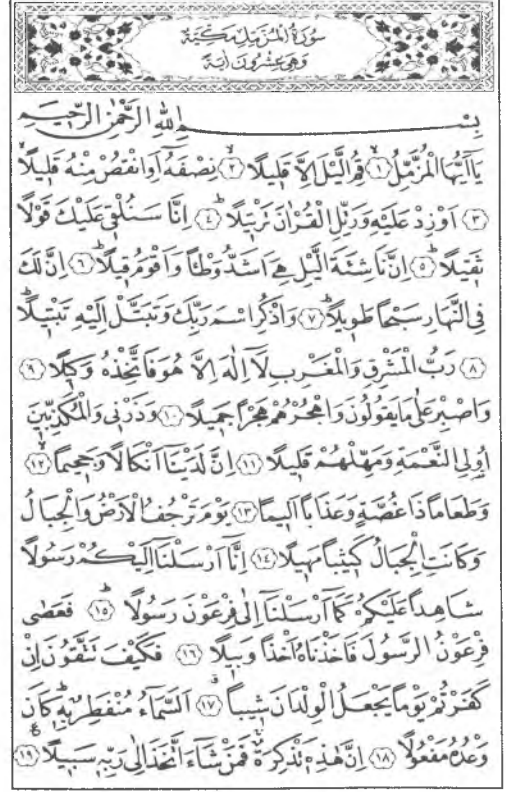 سُورَةُ الْمُزَّمِّلِ مَكِّيَّةٌ
وَهِيَ عِشْرُونَ اٰيَةً
بِسْمِ اللّٰهِ الرَّحْمٰنِ الرَّحِيمِ
يَٓا اَيُّهَا الْمُزَّمِّلُۙ ﴿١﴾ قُمِ الَّيْلَ اِلَّا قَلِيلًاۙ ﴿٢﴾ نِصْفَهُٓ اَوِ انْقُصْ مِنْهُ قَلِيلًاۙ
﴿٣﴾ اَوْ زِدْ عَلَيْهِ وَرَتِّلِ الْقُرْاٰنَ تَرْتِيلًاۜ ﴿٤﴾ اِنَّا سَنُلْقِي عَلَيْكَ قَوْلًا
ثَقِيلًاۜ ﴿٥﴾ اِنَّ نَاشِئَةَ الَّيْلِ هِيَ اَشَدُّ وَطْـًٔا وَاَقْوَمُ قِيلًاۜ ﴿٦﴾ اِنَّ لَكَ
فِي النَّهَارِ سَبْحًا طَوِيلًاۜ ﴿٧﴾ وَاذْكُرِ اسْمَ رَبِّكَ وَتَبَتَّلْ اِلَيْهِ تَبْتِيلًاۜ
﴿٨﴾ رَبُّ الْمَشْرِقِ وَالْمَغْرِبِ لَٓا اِلٰهَ اِلَّا هُوَ فَاتَّخِذْهُ وَكِيلًا ﴿٩﴾
وَاصْبِرْ عَلٰى مَا يَقُولُونَ وَاهْجُرْهُمْ هَجْرًا جَمِيلًا ﴿١٠﴾ وَذَرْنِي وَالْمُكَذِّبِينَ
اُولِي النَّعْمَةِ وَمَهِّلْهُمْ قَلِيلًا ﴿١١﴾ اِنَّ لَدَيْنَٓا اَنْكَالًا وَجَحِيمًاۙ ﴿١٢﴾
وَطَعَامًا ذَا غُصَّةٍ وَعَذَابًا اَلِيمًا ﴿١٣﴾ يَوْمَ تَرْجُفُ الْاَرْضُ وَالْجِبَالُ
وَكَانَتِ الْجِبَالُ كَثِيبًا مَهِيلًا ﴿١٤﴾ اِنَّٓا اَرْسَلْنَٓا اِلَيْكُمْ رَسُولًا
شَاهِدًا عَلَيْكُمْ كَمَٓا اَرْسَلْنَٓا اِلٰى فِرْعَوْنَ رَسُولًاۜ ﴿١٥﴾ فَعَصٰى
فِرْعَوْنُ الرَّسُولَ فَاَخَذْنَاهُ اَخْذًا وَبِيلًا ﴿١٦﴾ فَكَيْفَ تَتَّقُونَ اِنْ
كَفَرْتُمْ يَوْمًا يَجْعَلُ الْوِلْدَانَ شِيبًاۗ ﴿١٧﴾ اَلسَّمَٓاءُ مُنْفَطِرٌ بِهِۜ كَانَ
وَعْدُهُ مَفْعُولًا ﴿١٨﴾ اِنَّ هٰذِهِ تَذْكِرَةٌۚ فَمَنْ شَٓاءَ اتَّخَذَ اِلٰى رَبِّهِ سَبِيلًاࣖ ﴿١٩﴾